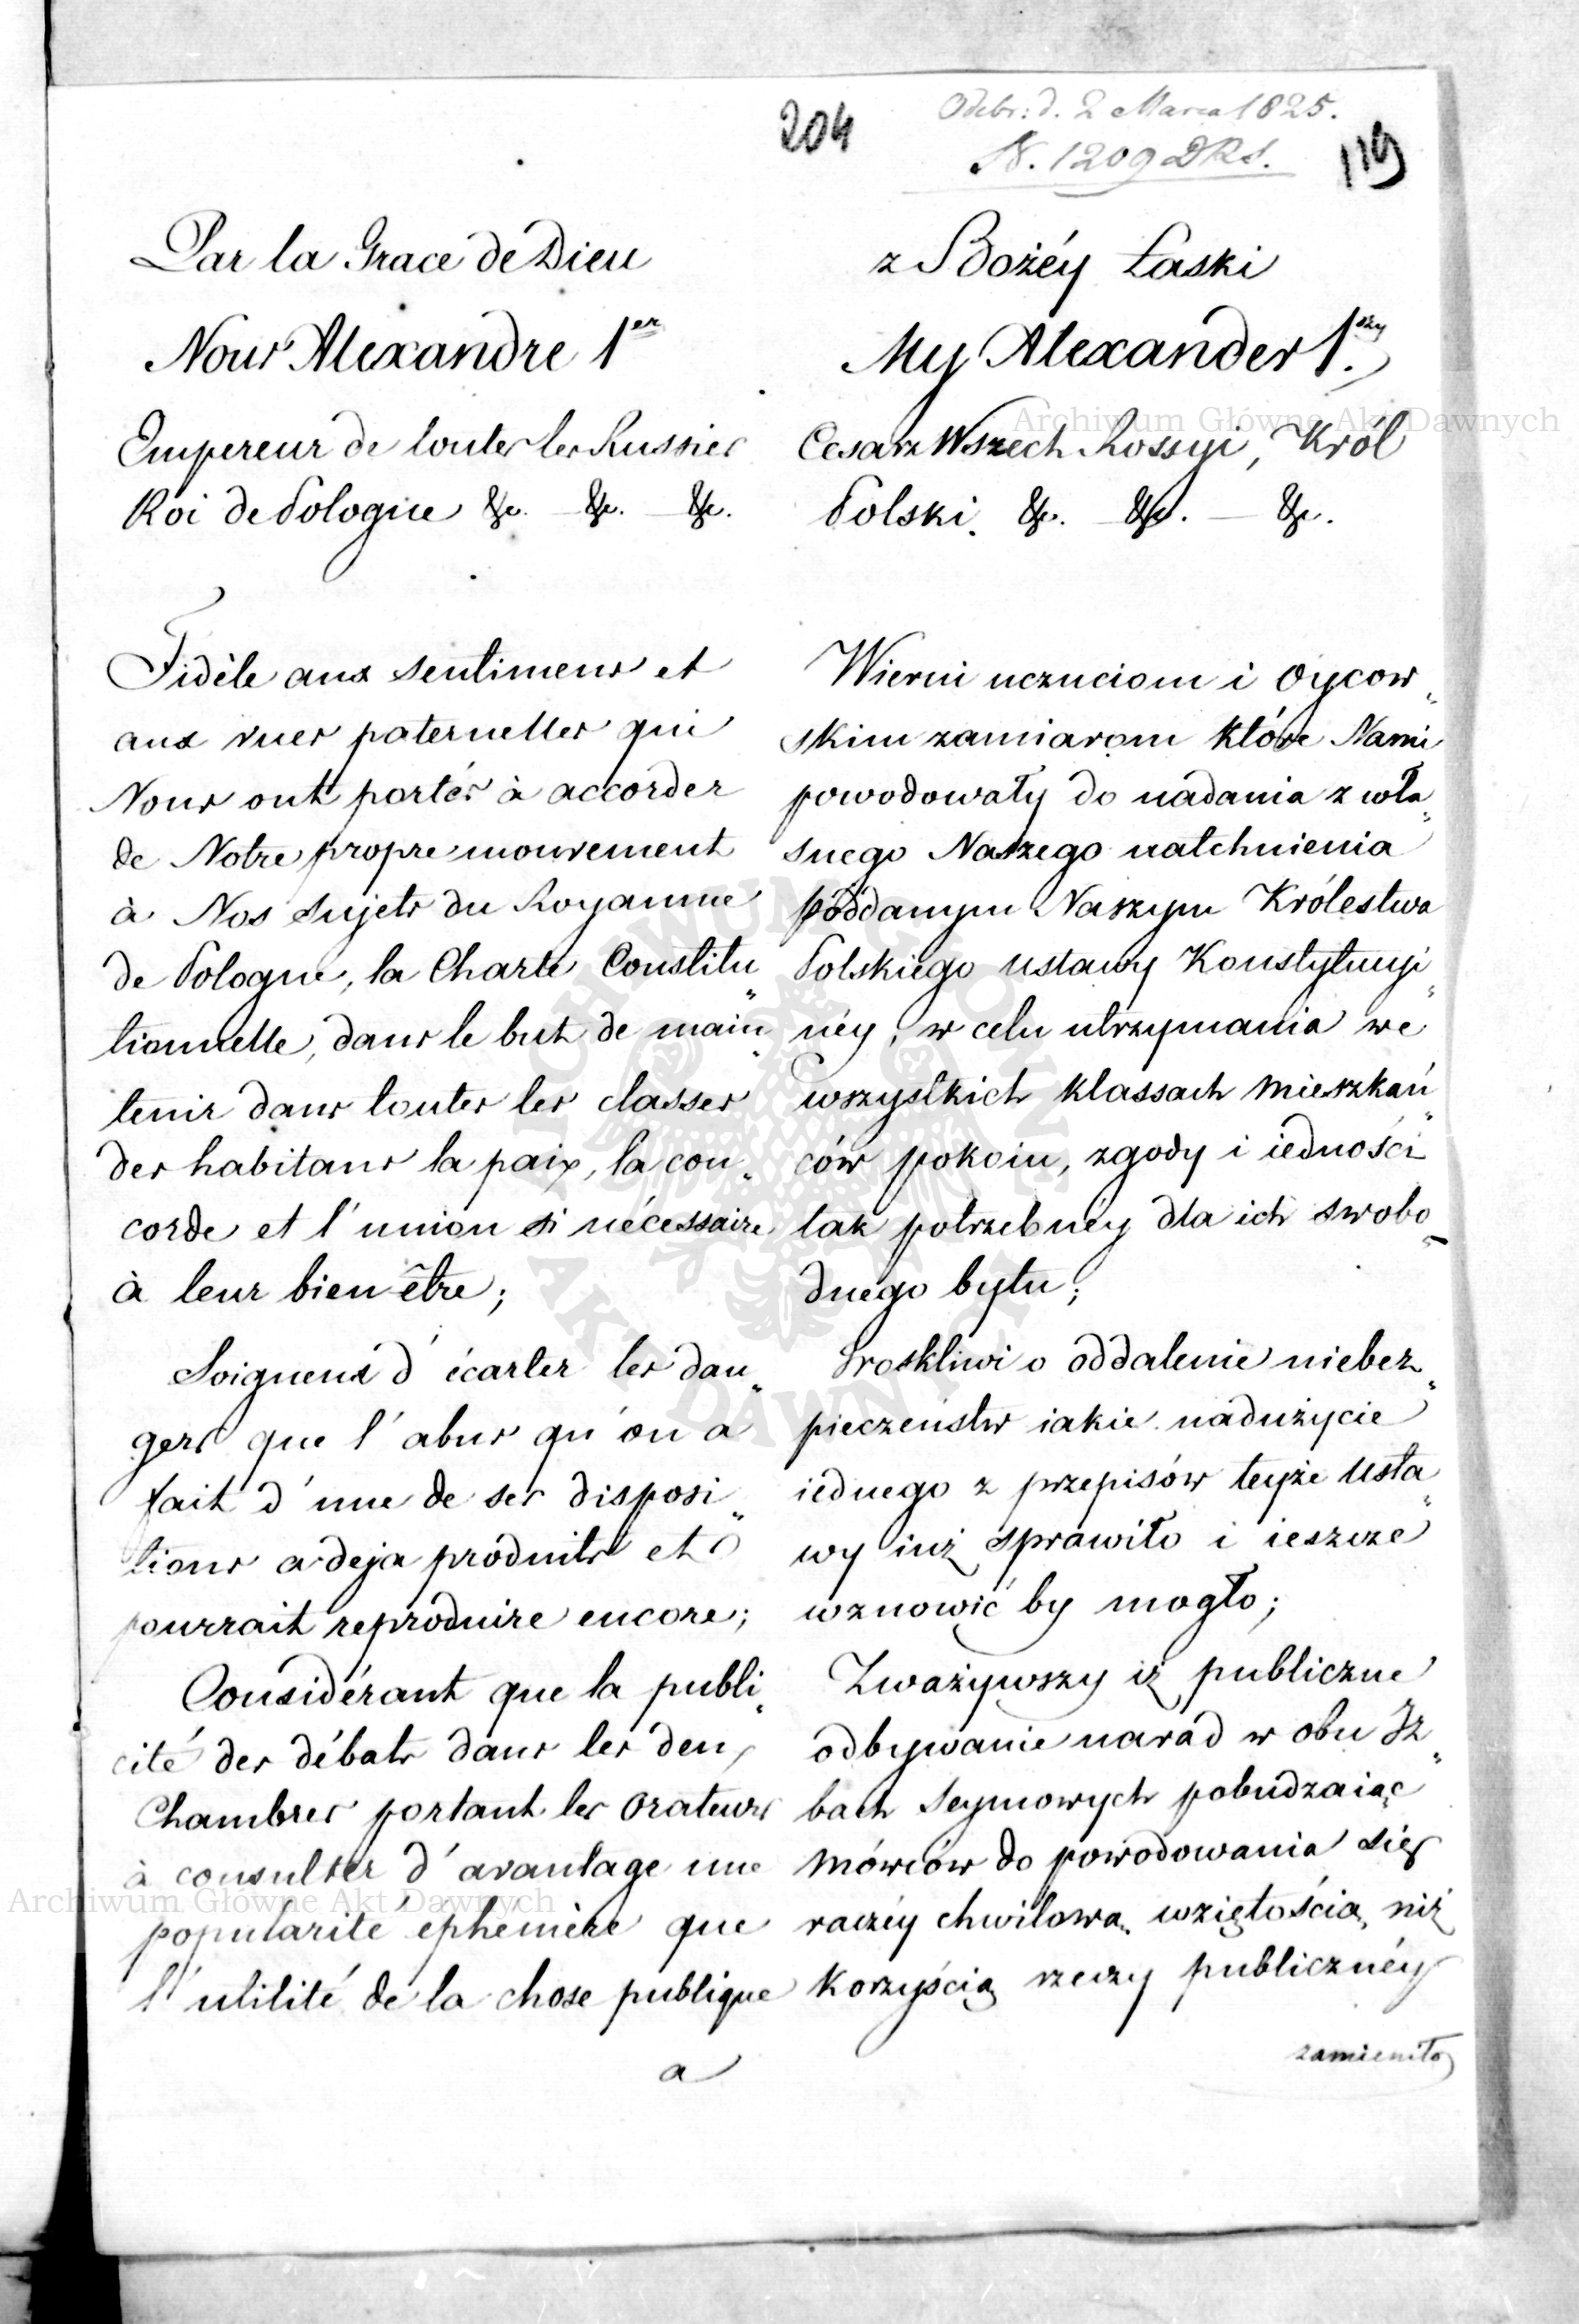 204
Odebr: d. 2 Marca 1825.
N. 1209 DRS.
119
Par la Grace de Dieu
Nous Alexandre 1er
Empereur de toutes les Russies
Roi de Pologne &c. — &c. — &c.
Fidèle aux sentimens et
aux vues paternelles qui
Nous ont portés à accorder
de Notre propre mouvement
à Nos sujets du Royaume
de Pologne, la Charte Constitu„
tionnelle, dans le but de main„
tenir dans toutes les classes
des habitans la paix, la con„
corde et l'union si nécessaire
à leur bien être;
Soigneux d'écarter les dan„
gers que l'abus qu'on a
fait d'une de ses disposi„
tions a deja produits et
pourrait reproduire encore;
Considérant que la publi„
cité des débats dans les deux
Chambres portant les Orateurs
à consulter d'avantage une
popularité éphemère que
l'utilité de la chose publique
a
z Bożéy Łaski
My Alexander 1szy.
Cesarz Wszech Rossyi, Król
Polski. &c. — &c. — &c.
Wierni uczuciom i Oycow„
skim zamiarom które Nami
powodowały do nadania z wła„
snego Naszego natchnienia
poddanym Naszym Królestwa
Polskiego ustawy Konstytucyi„
néy, w celu utrzymania we
wszystkich klassach Mieszkań„
ców pokoiu, zgody i iedności
tak potrzebnéy dla ich swobo„
dnego bytu;
Troskliwi o oddalenie niebez„
pieczeństw iakie nadużycie
iednego z przepisów teyże Usta„
wy iuż sprawiło i ieszcze
wznowić by mogło;
Zważywszy iż publiczne
odbywanie narad w obu Iz„
bach Seymowych pobudzaiąc
Mówców do powodowania się
raczéy chwilową wziętością, niż
korzyścią rzeczy publicznéy
zamieniło
Archiwum Główne Akt Dawnych
Archiwum Główne Akt Dawnych
ARCHIWUM GŁÓWNE
AKT DAWNYCH